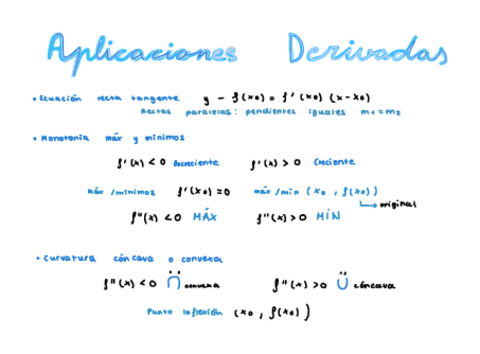 Aplicaciones Derivadas
• Ecuación recta tangente y - f(x₀) = f'(x₀) (x-x₀)
Rectas paralelas: pendientes iguales m₁=m₂
• Monotonía máx y mínimos
f'(x) < 0 Decreciente f'(x) > 0 Creciente
Máx/mínimos f'(x₀) = 0 máx/mín (x₀, f(x₀))
↳ original
f''(x) < 0 MÁX f''(x) > 0 MÍN
• Curvatura cóncava o convexa
f''(x) < 0 ∩ convexa f''(x) > 0 ∪ cóncava
Punto inflexión (x₀, f(x₀))